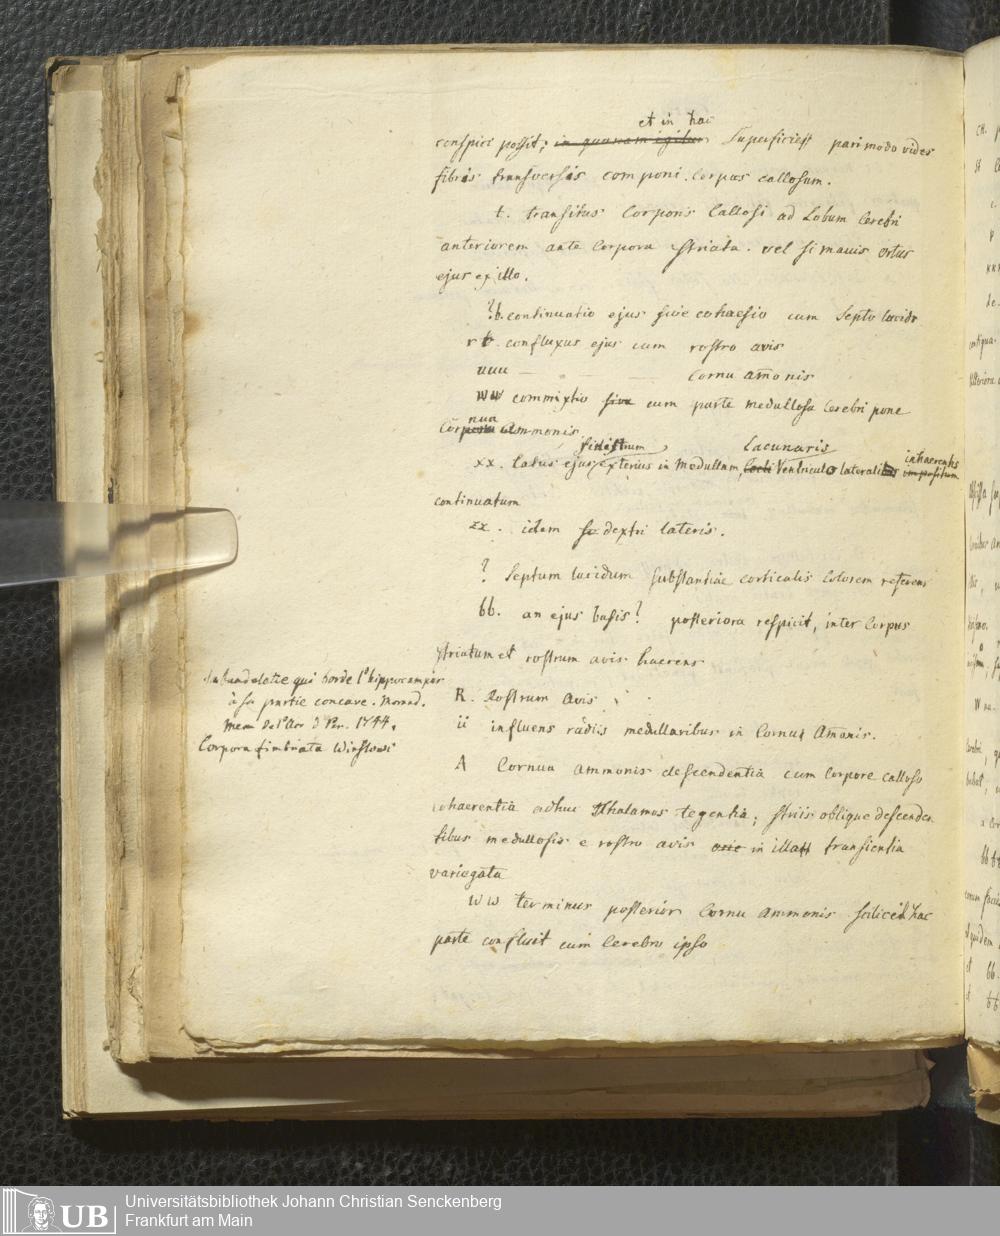 et in hac
conspici possit; in quanam igitur Superficies pari modo vides
fibris transversis componi Corpus callosum.
t. transitus Corporis Callosi ad Lobum Cerebri
anteriorem ante Corpora striata. vel si mavis ortus
ejus ex illo.
?b. continuatio ejus sive cohaesio cum Septo lucido
r t. confluxus ejus cum rostro avis
uuu — — — Cornu amonis
ww commixtio sive cum parte medullosa Cerebri pone
nua
Corpora ammonis
sinistrum lacunaris inhaerentis
xx. latus ejus exterius in medullam, tecti Ventriculo lateralibus impositum
continuatum
zx. idem dextri lateris.
? Septum lucidum substantiae corticalis Colorem referens
bb. an ejus basis? posteriora respicit, inter Corpus
striatum et rostrum avis haerens
la bandelette qui borde l'hippocampe
à sa partie concave. Morand.
Mem de l'Ac d Par. 1744.
Corpora fimbriata Winslowi
R. Rostrum avis
ii influens radiis medullaribus in Cornua Amonis.
A Cornua ammonis descendentia cum Corpore calloso
cohaerentia adhuc Thalamos tegentia; striis oblique descenden
tibus medullosis e rostro avis in illa transientia
variegata
ww terminus posterior Cornu ammonis scilicet hac
parte confluit cum Cerebro ipso
UB
Universitätsbibliothek Johann Christian Senckenberg
Frankfurt am Main